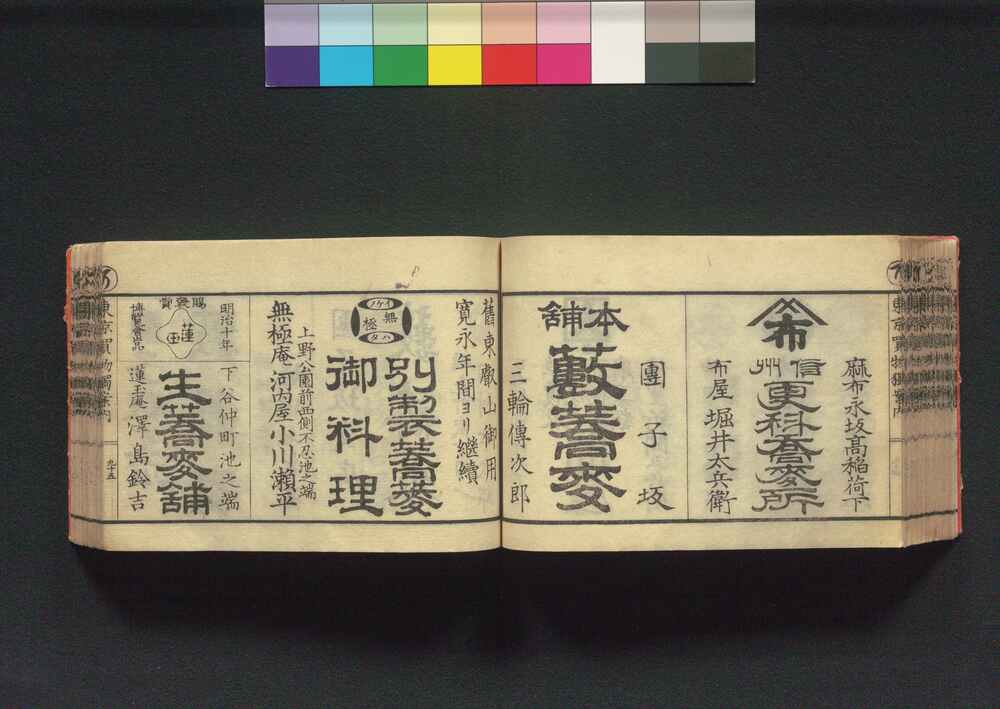 麻布永坂髙稲荷下
布
信州
更科蕎麥所
布屋 堀井太兵衛
團子坂
本舗
藪蕎麥
三輪傳次郎
舊東叡山御用
寛永年間ヨリ継續
無極
別製蕎麥
御料理
上野公園前西側不忍池之端
無極庵 河内屋 小川瀬平
明治十年
下谷仲町池之端
蓮玉
生蕎麥舖
博覧會出品
蓮玉庵 澤島鈴吉
東京買物獨案内
九十五